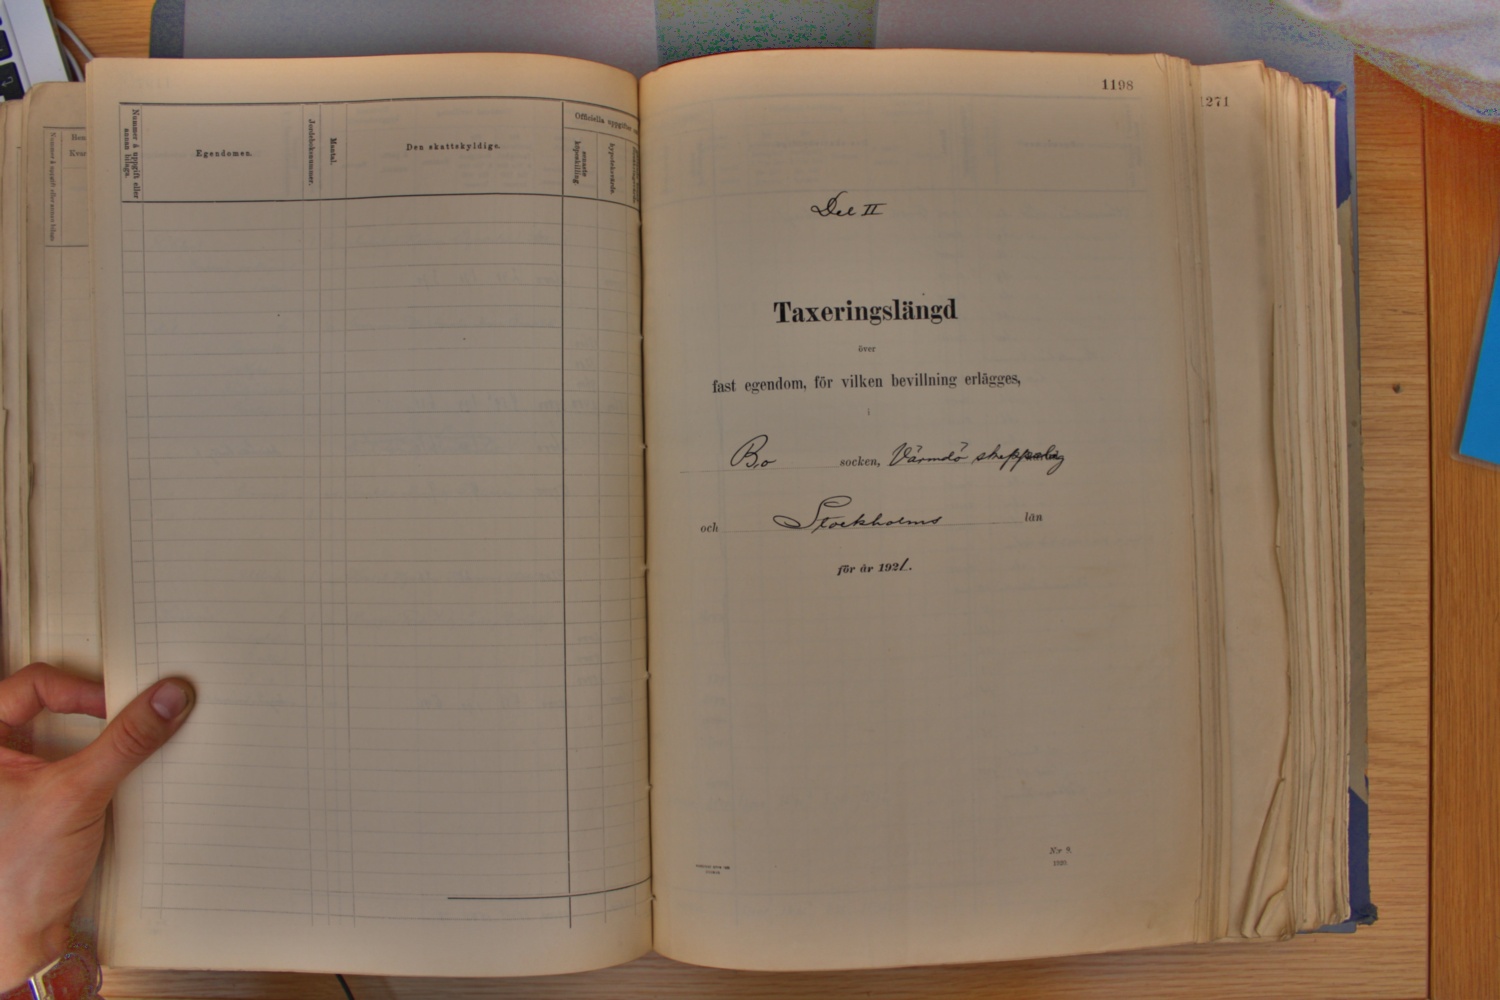 Nummer å uppgift eller
annan bilaga.
Egendomen.
Jordeboksnummer.
Mantal.
Den skattskyldige.
Officiella uppgifter
senaste
köpeskilling.
hypoteksvärde.
1198
1271
Del II
Taxeringslängd
över
fast egendom, för vilken bevillning erlägges,
i
Bo socken, Värmdö skeppslag
och Stockholms län
för år 1921.
N:r 9.
1920.